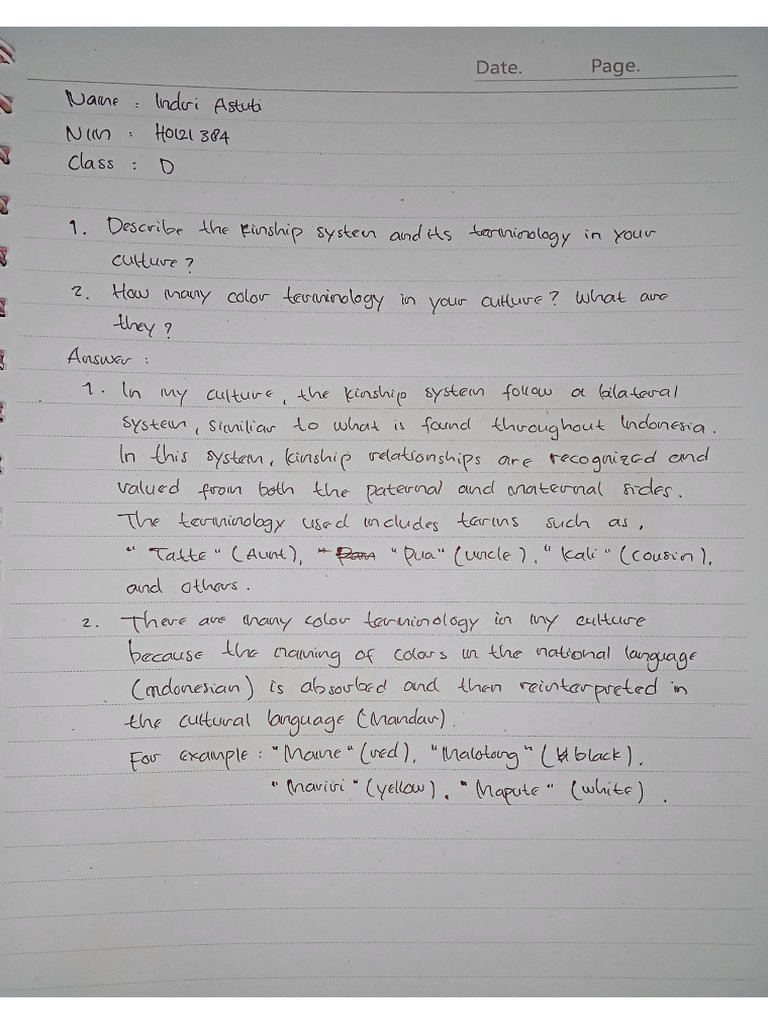 Date. Page.
Name : Indri Astuti
Nim : H0121384
Class : D
1. Describe the kinship system and its terminology in your
culture?
2. How many color terminology in your culture? What are
they?
Answer :
1. In my culture, the kinship system follow a bilateral
system, similiar to what is found throughout Indonesia.
In this system, kinship relationships are recognized and
valued from both the paternal and maternal sides.
The terminology used includes terms such as,
"Tatte" (Aunt), "Pua" (uncle), "Kali" (cousin),
and others.
2. There are many color terminology in my culture
because the naming of colors in the national language
(Indonesian) is absorbed and then reinterpreted in
the cultural language (Mandar).
For example : "Mame" (red), "Malotong" (black),
"Mariri" (yellow), "Mapute" (white).